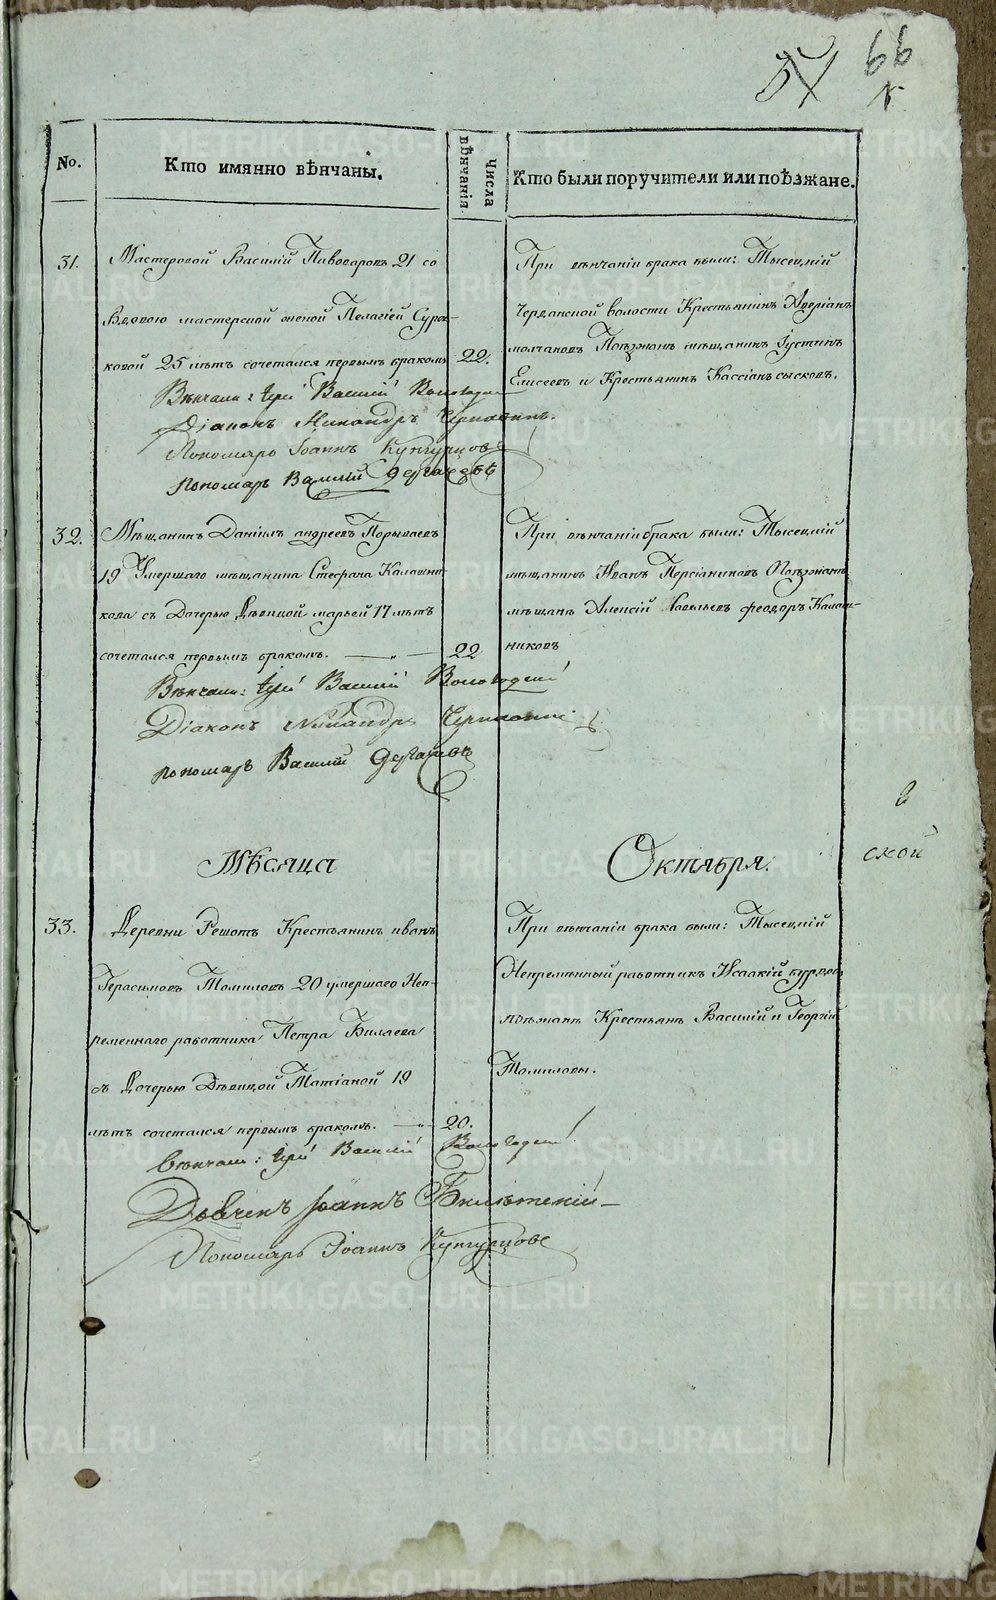 54 66
No.
Кто имянно вѣнчаны.
Числа вѣнчанія.
Кто были поручители или поѣзжане.
31.
Мастеровой Василій Пивоваровъ 21 со
вдовою мастерской женой Пелагіей Суро-
ковой 25 лѣтъ сочетался первымъ бракомъ
22.
Вѣнчали: Іерей Василій
Діаконъ Никандръ
Пономарь Іоаннъ Кунгурцовъ
Пономарь Василій Дергачевъ
При вѣнчаніи брака были: Тысецкій
волости Крестьянинъ Аверіанъ
молчановъ Поѣзжанъ мѣщанинъ Іустинъ
Елисеевъ и Крестьянинъ Кассіанъ сысковъ.
32.
Мѣщанинъ Даніилъ андреевъ Порываевъ
19 Умершаго мѣщанина Стефана Калашни-
кова съ Дочерью Дѣвицой марьей 17 лѣтъ
сочетался первымъ бракомъ.
22
Вѣнчали: Іерей Василій Вологодскій
Діаконъ Никандръ
пономарь Василій Дергачевъ
При вѣнчаніи брака были: Тысецкій
мѣщанинъ Иванъ Персіаниновъ Поѣзжанъ
мѣщанъ Алексій феодоръ Калаш-
никовъ
Мѣсяца
Октября.
ской
33.
Деревни Решотъ Крестьянинъ иванъ
Герасимовъ Томиловъ 20 умершаго Неп-
ременнаго работника Петра Биляева
съ Дочерью Дѣвицой Татіаной 19
лѣтъ сочетался первымъ бракомъ.
20.
Вѣнчали: Іерей Василій Вологодскій
Іоаннъ
Пономарь Іоаннъ Кунгурцовъ
При вѣнчаніи брака были: Тысецкій
Непремѣнный работникъ Исаакій
поѣзжанъ Крестьянъ Василій и Георгій
Томиловы.
METRIKI.GASO-URAL.RU